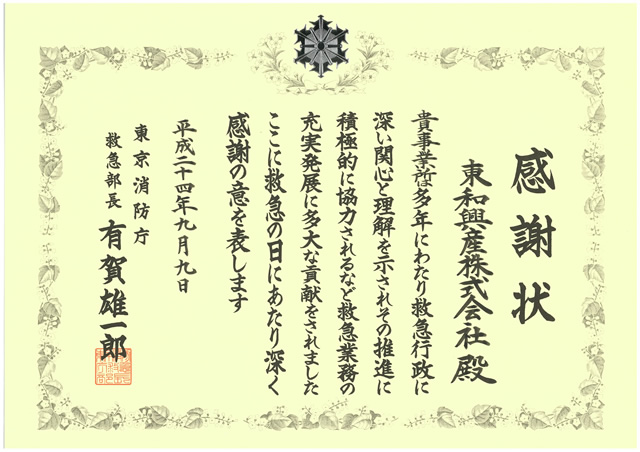 感謝状
東和興産株式会社殿
貴事業所は多年にわたり救急行政に
深い関心と理解を示されその推進に
積極的に協力されるなど救急業務の
充実発展に多大な貢献をされました
ここに救急の日にあたり深く
感謝の意を表します
平成二十四年九月九日
東京消防庁
救急部長 有賀雄一郎